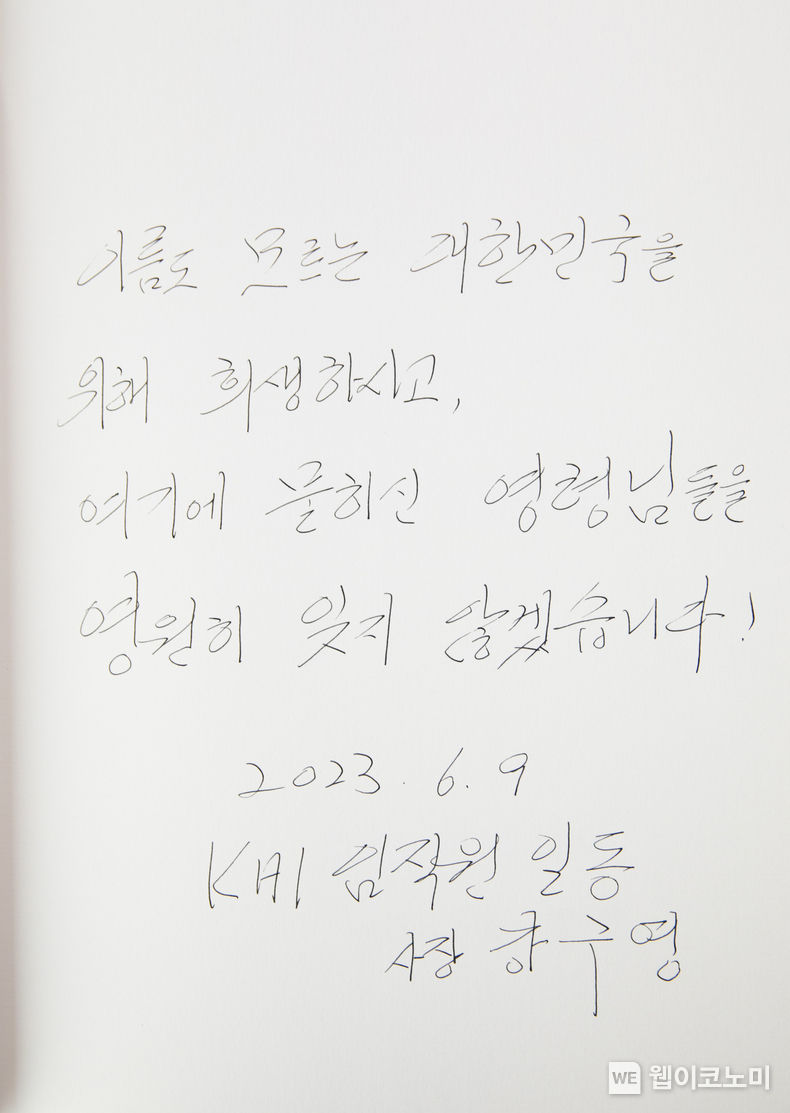 이름도 모르는 대한민국을
위해 희생하시고,
여기에 묻히신 영령님들을
영원히 잊지 않겠습니다!
2023. 6. 9
KAI 임직원 일동
사장 강구영
WE 웹이코노미